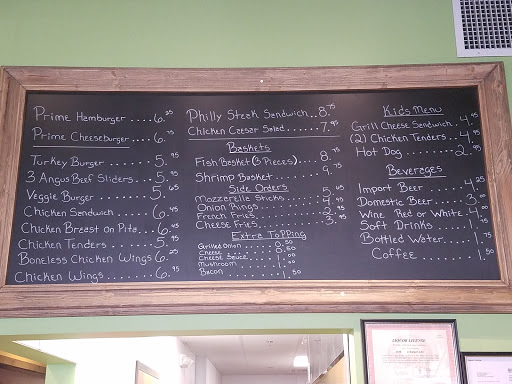 Prime Hamburger....6.25
Prime Cheeseburger...6.75
Turkey Burger......5.95
3 Angus Beef Sliders...5.95
Veggie Burger......5.65
Chicken Sandwich.....6.95
Chicken Breast on Pita...6.45
Chicken Tenders.....5.95
Boneless Chicken Wings 6.25
Chicken Wings.......6.95
Philly Steak Sandwich..8.75
Chicken Caesar Salad.....7.95
Baskets
Fish Basket (3 Pieces)....8.75
Shrimp Basket.......9.75
Side Orders
Mozzerella Sticks.....5.65
Onion Rings........4.95
French Fries........2.95
Cheese Fries........3.95
Extra Topping
Grilled Onion.....0.50
Cheese........0.50
Cheese Sauce.....1.00
Mushroom.......1.00
Bacon........1.50
Kids Menu
Grill Cheese Sandwich..4.95
(2) Chicken Tenders...4.95
Hot Dog.........2.95
Beverages
Import Beer......4.25
Domestic Beer....3.00
Wine Red or White.4.00
Soft Drinks.....1.75
Bottled Water....1.75
Coffee.......1.50
LIQUOR LICENSE